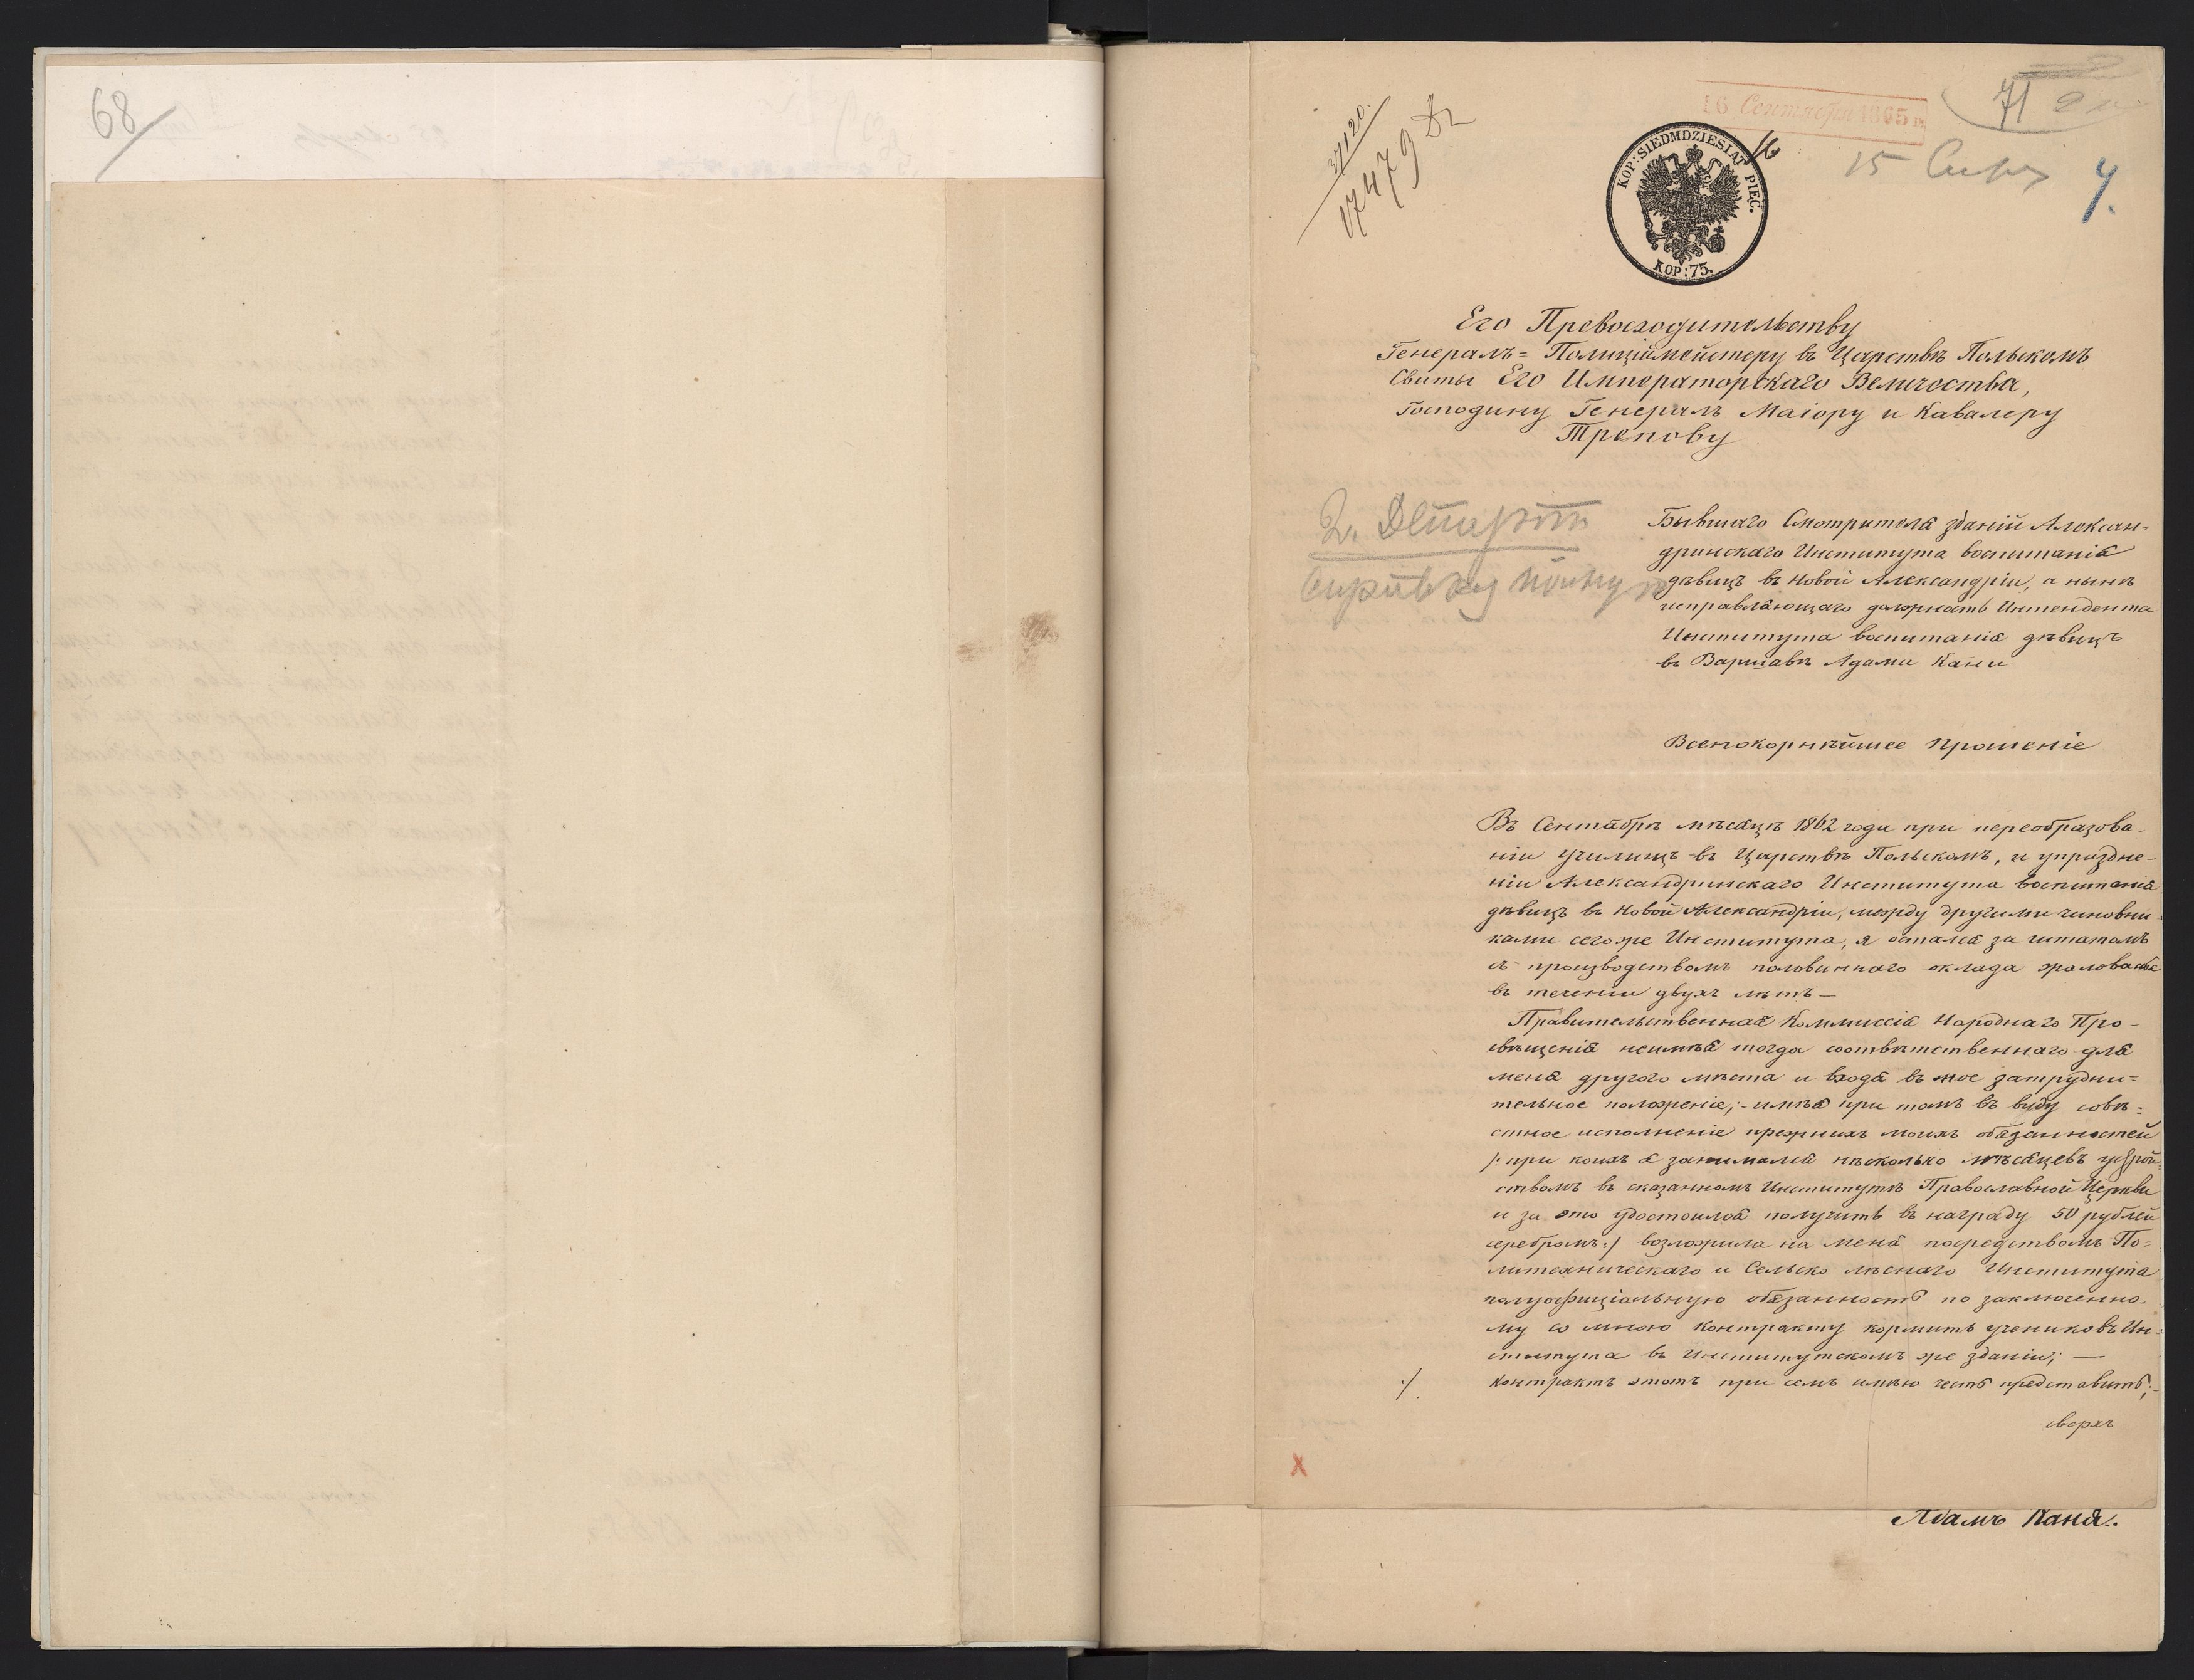 68
71
37120
17479
16 Сентября 1865
15
4.
KOP: SIEDMDZIESIĄT PIĘĆ.
KOP: 75.
Его Превосходительству
Генералъ=Полиціймейстеру въ Царствѣ Польскомъ
Свиты Его Императорскаго Величества,
Господину Генералъ Маіору и Кавалеру
Трепову
Бывшаго Смотрителя зданій Алексан=
дринскаго Института воспитанія
дѣвицъ въ Новой Александріи, а нынѣ
исправляющаго должность Интендента
Института воспитанія дѣвицъ
въ Варшавѣ Адама Кани
Всепокорнѣйшее прошеніе
Въ Сентябрѣ мѣсяцѣ 1862 года при переобразова-
ніи училищъ въ Царствѣ Польскомъ, и упраздне-
ніи Александринскаго Института воспитанія
дѣвицъ въ Новой Александріи, между другими чиновни-
ками сегоже Института, я остался за штатомъ
съ производствомъ половиннаго оклада жалованья
въ теченіи двухъ лѣтъ —
Правительственная Коммиссія Народнаго Про-
свѣщенія неимѣя тогда соотвѣтственнаго для
меня другого мѣста и входя въ мое затрудни=
тельное положеніе; - имѣя при томъ въ виду совѣ=
стное исполненіе прежнихъ моихъ обязанностей
/: при коихъ я занимался нѣсколько мѣсяцевъ устрой=
ствомъ въ сказанномъ Институтѣ Православной Церкви
и за это удостоился получить въ награду 50 рублей
серебромъ :/ возложила на меня посредствомъ По=
литехническаго и Сельско лѣснаго Института
полуофиціальную обязанность по заключенно-
му со мною контракту кормить учениковъ Ин-
ститута въ Институтскомъ же зданіи; —
./. Контрактъ этотъ при семъ имѣю честь представить; -
сверхъ
X
Адамъ Каня.